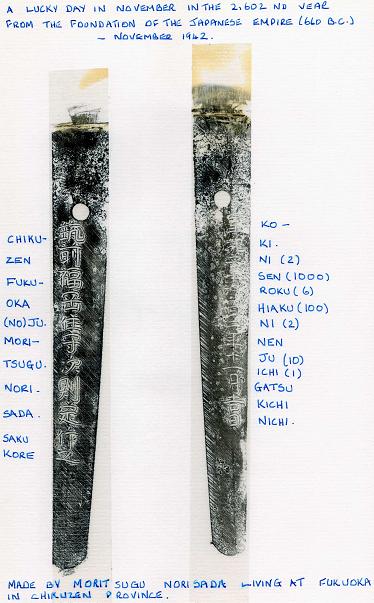 A LUCKY DAY IN NOVEMBER IN THE 2,602 ND YEAR
FROM THE FOUNDATION OF THE JAPANESE EMPIRE (660 B.C.)
– NOVEMBER 1942.
CHIKU-
ZEN
FUKU-
OKA
(NO)JU.
MORI-
TSUGU.
NORI-
SADA.
SAKU
KORE
筑前福岡住守次則定
KO –
KI.
NI (2)
SEN (1000)
ROKU (6)
HIAKU (100)
NI (2)
NEN
JU (10)
ICHI (1)
GATSU
KICHI
NICHI.
MADE BY MORITSUGU NORISADA LIVING AT FUKUOKA
IN CHIKUZEN PROVINCE.